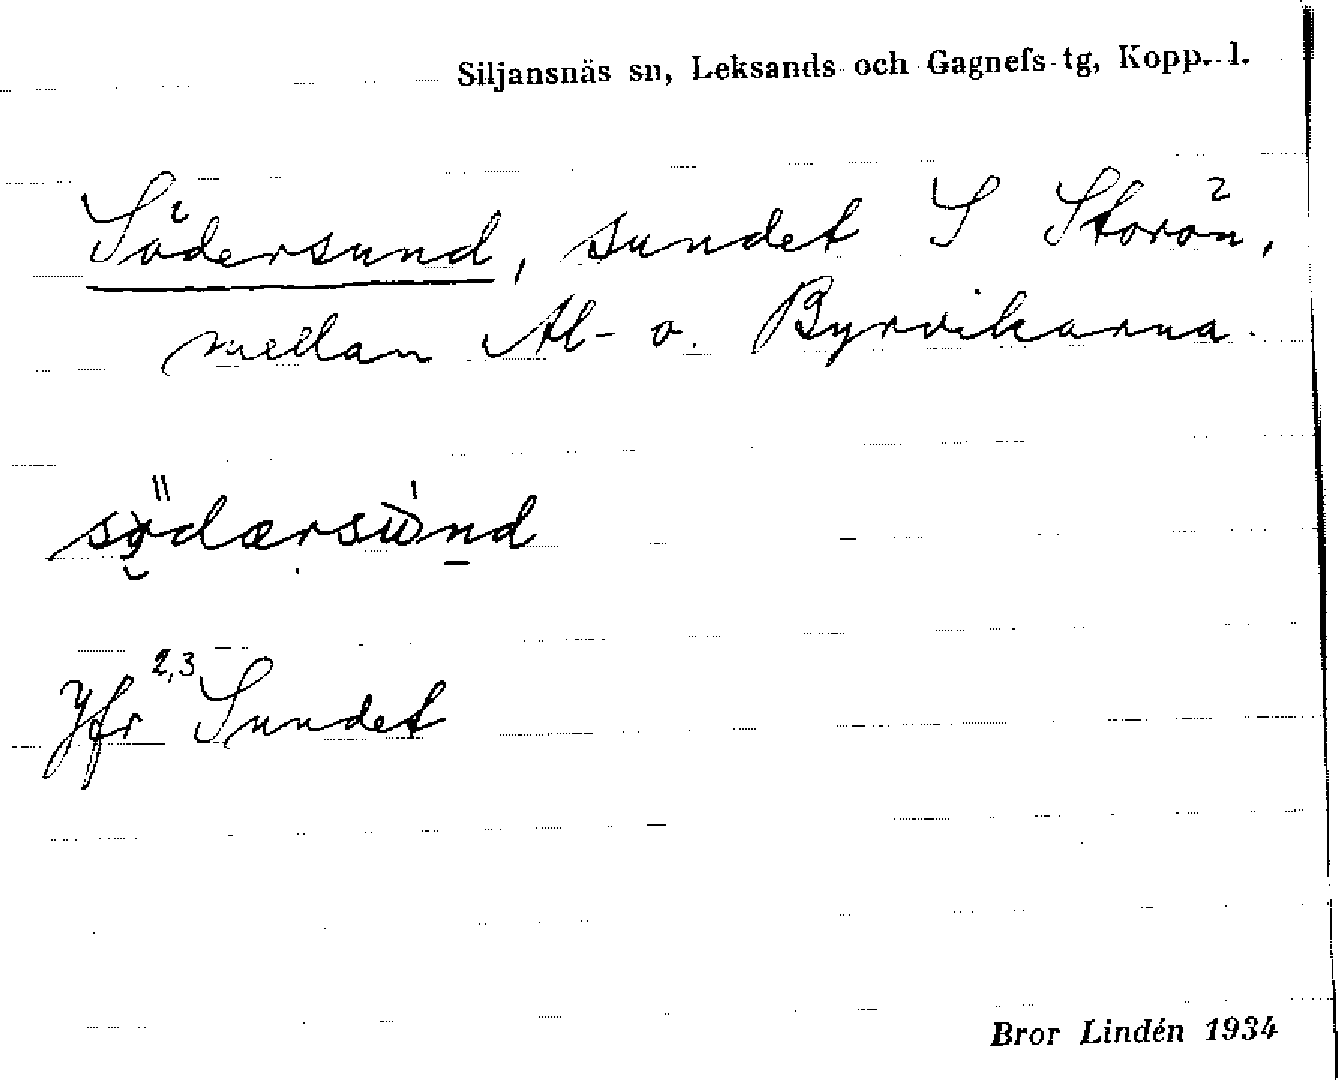 Siljansnäs sn, Leksands och Gagnefs tg, Kopp. l.
Södersund, sundet S Storön,
mellan Al- o. Byrvikarna.
södærsund
Jfr 2,3 Sundet
Bror Lindén 1934